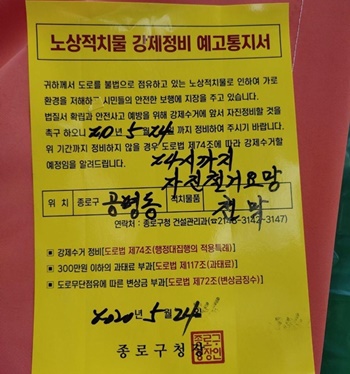 노상적치물 강제정비 예고통지서
귀하께서 도로를 불법으로 점유하고 있는 노상적치물로 인하여 가로
환경을 저해하고 시민들의 안전한 보행에 지장을 주고 있습니다.
법질서 확립과 안전사고 예방을 위해 강제수거에 앞서 자진정비할 것을
촉구 하오니 20년 5월 24일 까지 정비하여 주시기 바랍니다.
위 기간까지 정비하지 않을 경우 도로법 제74조에 따라 강제수거할
예정임을 알려드립니다.
24시까지
자진철거요망
위 치 종로구 공평동 적치물품 천막
연락처 : 종로구청 건설관리과(☎2148-3142~3147)
▣ 강제수거 정비[도로법 제74조(행정대집행의 적용특례)]
▣ 300만원 이하의 과태료 부과[도로법 제117조(과태료)]
▣ 도로무단점유에 따른 변상금 부과[도로법 제72조(변상금징수)]
2020년 5월 24일
종로구청장
종로구
청장인